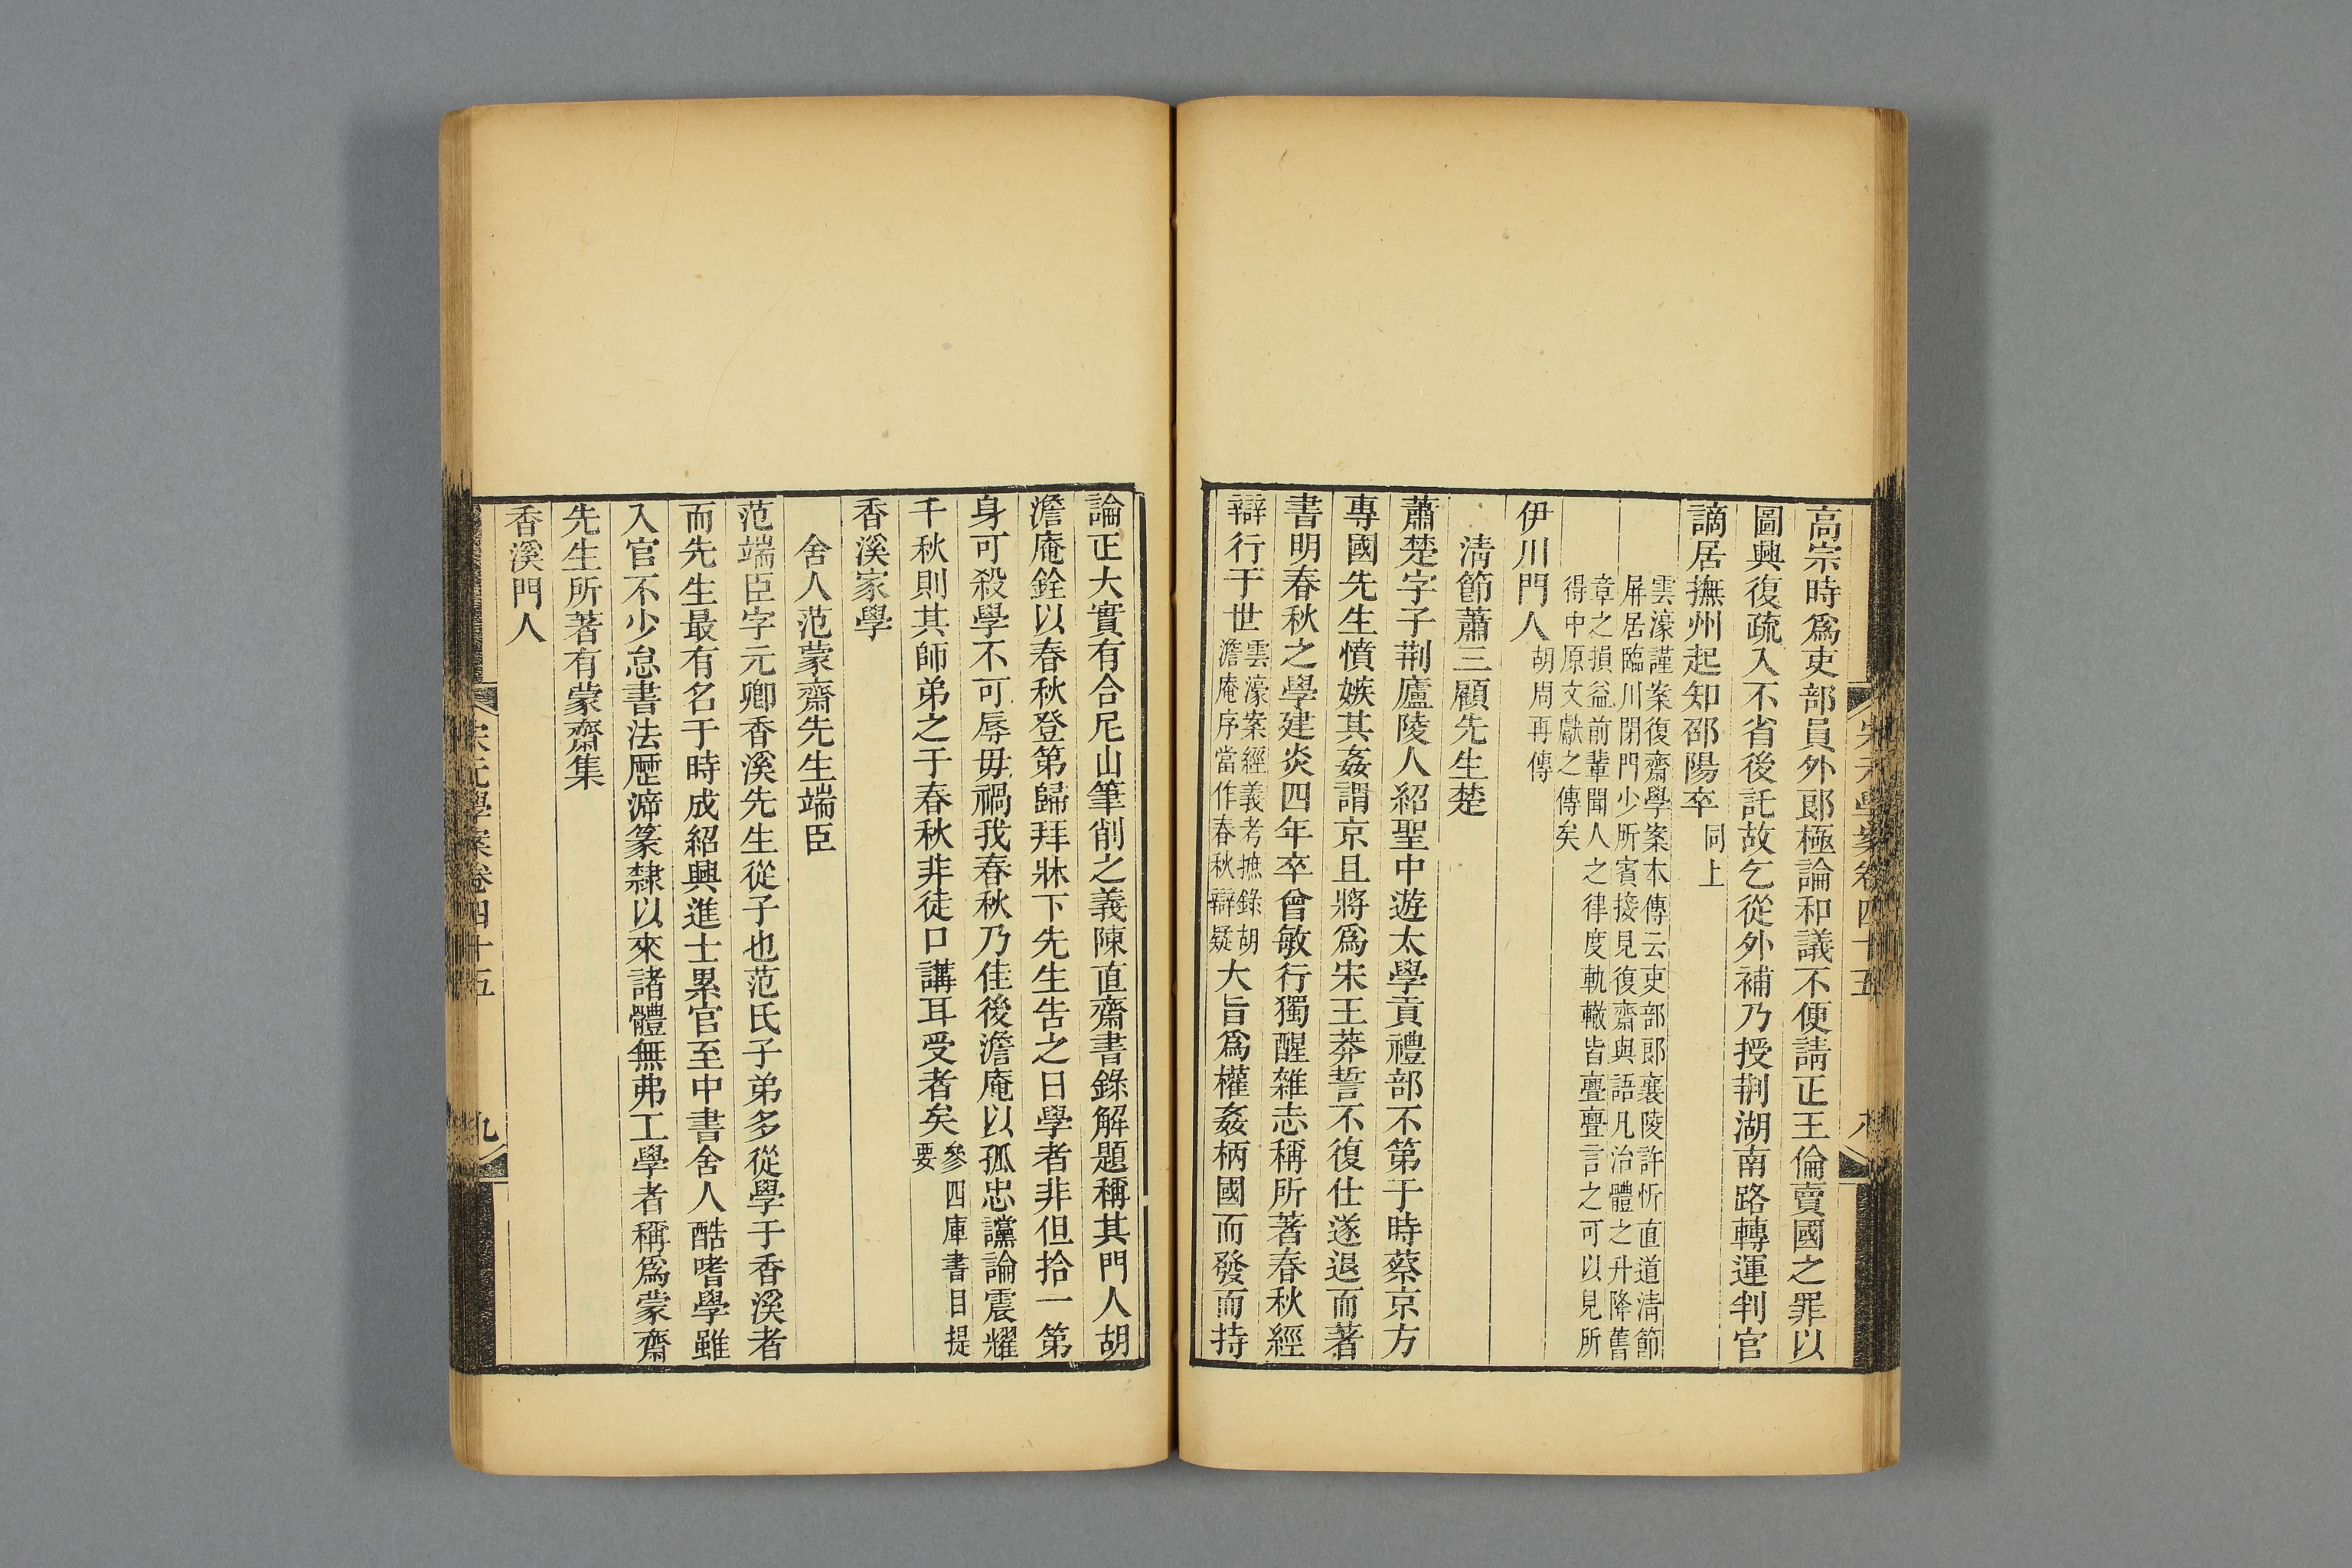 宋元學案卷四十五
八
高宗時爲吏部員外郎極論和議不便請正王倫賣國之罪以
圖興復疏入不省後託故乞從外補乃授荆湖南路轉運判官
謫居撫州起知邵陽卒同上
雲濠謹案復齋學案本傳云吏部郎襄陵許忻直道淸節
屏居臨川閉門少所賓接見復齋與語凡治體之升降舊
章之損益前輩聞人之律度軌轍皆亹亹言之可以見所
得中原文獻之傳矣
伊川門人胡周再傳
淸節蕭三顧先生楚
蕭楚字子荆廬陵人紹聖中遊太學貢禮部不第于時蔡京方
專國先生憤嫉其姦謂京且將爲宋王莽誓不復仕遂退而著
書明春秋之學建炎四年卒曾敏行獨醒雜志稱所著春秋經
辯行于世雲濠案經義考摭錄胡澹庵序當作春秋辯疑大旨爲權姦柄國而發而持
論正大實有合尼山筆削之義陳直齋書錄解題稱其門人胡
澹庵銓以春秋登第歸拜牀下先生告之曰學者非但拾一第
身可殺學不可辱毋禍我春秋乃佳後澹庵以孤忠讜論震耀
千秋則其師弟之于春秋非徒口講耳受者矣參四庫書目提要
香溪家學
舍人范蒙齋先生端臣
范端臣字元卿香溪先生從子也范氏子弟多從學于香溪者
而先生最有名于時成紹興進士累官至中書舍人酷嗜學雖
入官不少怠書法歷渧篆隸以來諸體無弗工學者稱爲蒙齋
先生所著有蒙齋集
香溪門人
宋元學案卷四十五
九